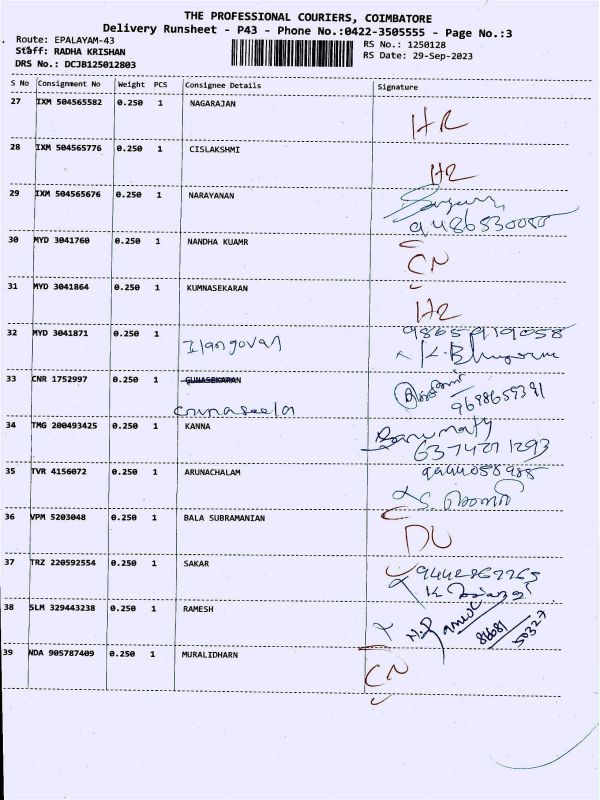 THE PROFESSIONAL COURIERS, COIMBATORE
Delivery Runsheet - P43 - Phone No.:0422-3505555 - Page No.:3
Route: EPALAYAM-43
RS No.: 1250128
Staff: RADHA KRISHAN
RS Date: 29-Sep-2023
DRS No.: DCJB125012803
S No Consignment No Weight PCS Consignee Details Signature
27 IXM 504565582 0.250 1 NAGARAJAN
28 IXM 504565776 0.250 1 CISLAKSHMI
29 IXM 504565676 0.250 1 NARAYANAN
30 MYD 3041760 0.250 1 NANDHA KUAMR
CN
31 MYD 3041864 0.250 1 KUMNASEKARAN
32 MYD 3041871 0.250 1
Ilangovan
33 CNR 1752997 0.250 1 GUNASEKARAN
9698659391
Gunaseela
34 TMG 200493425 0.250 1 KANNA
6374271293
35 TVR 4156072 0.250 1 ARUNACHALAM
9444058988
36 VPM 5203048 0.250 1 BALA SUBRAMANIAN
DU
37 TRZ 220592554 0.250 1 SAKAR
38 SLM 329443238 0.250 1 RAMESH
39 NDA 905787409 0.250 1 MURALIDHARN
CN